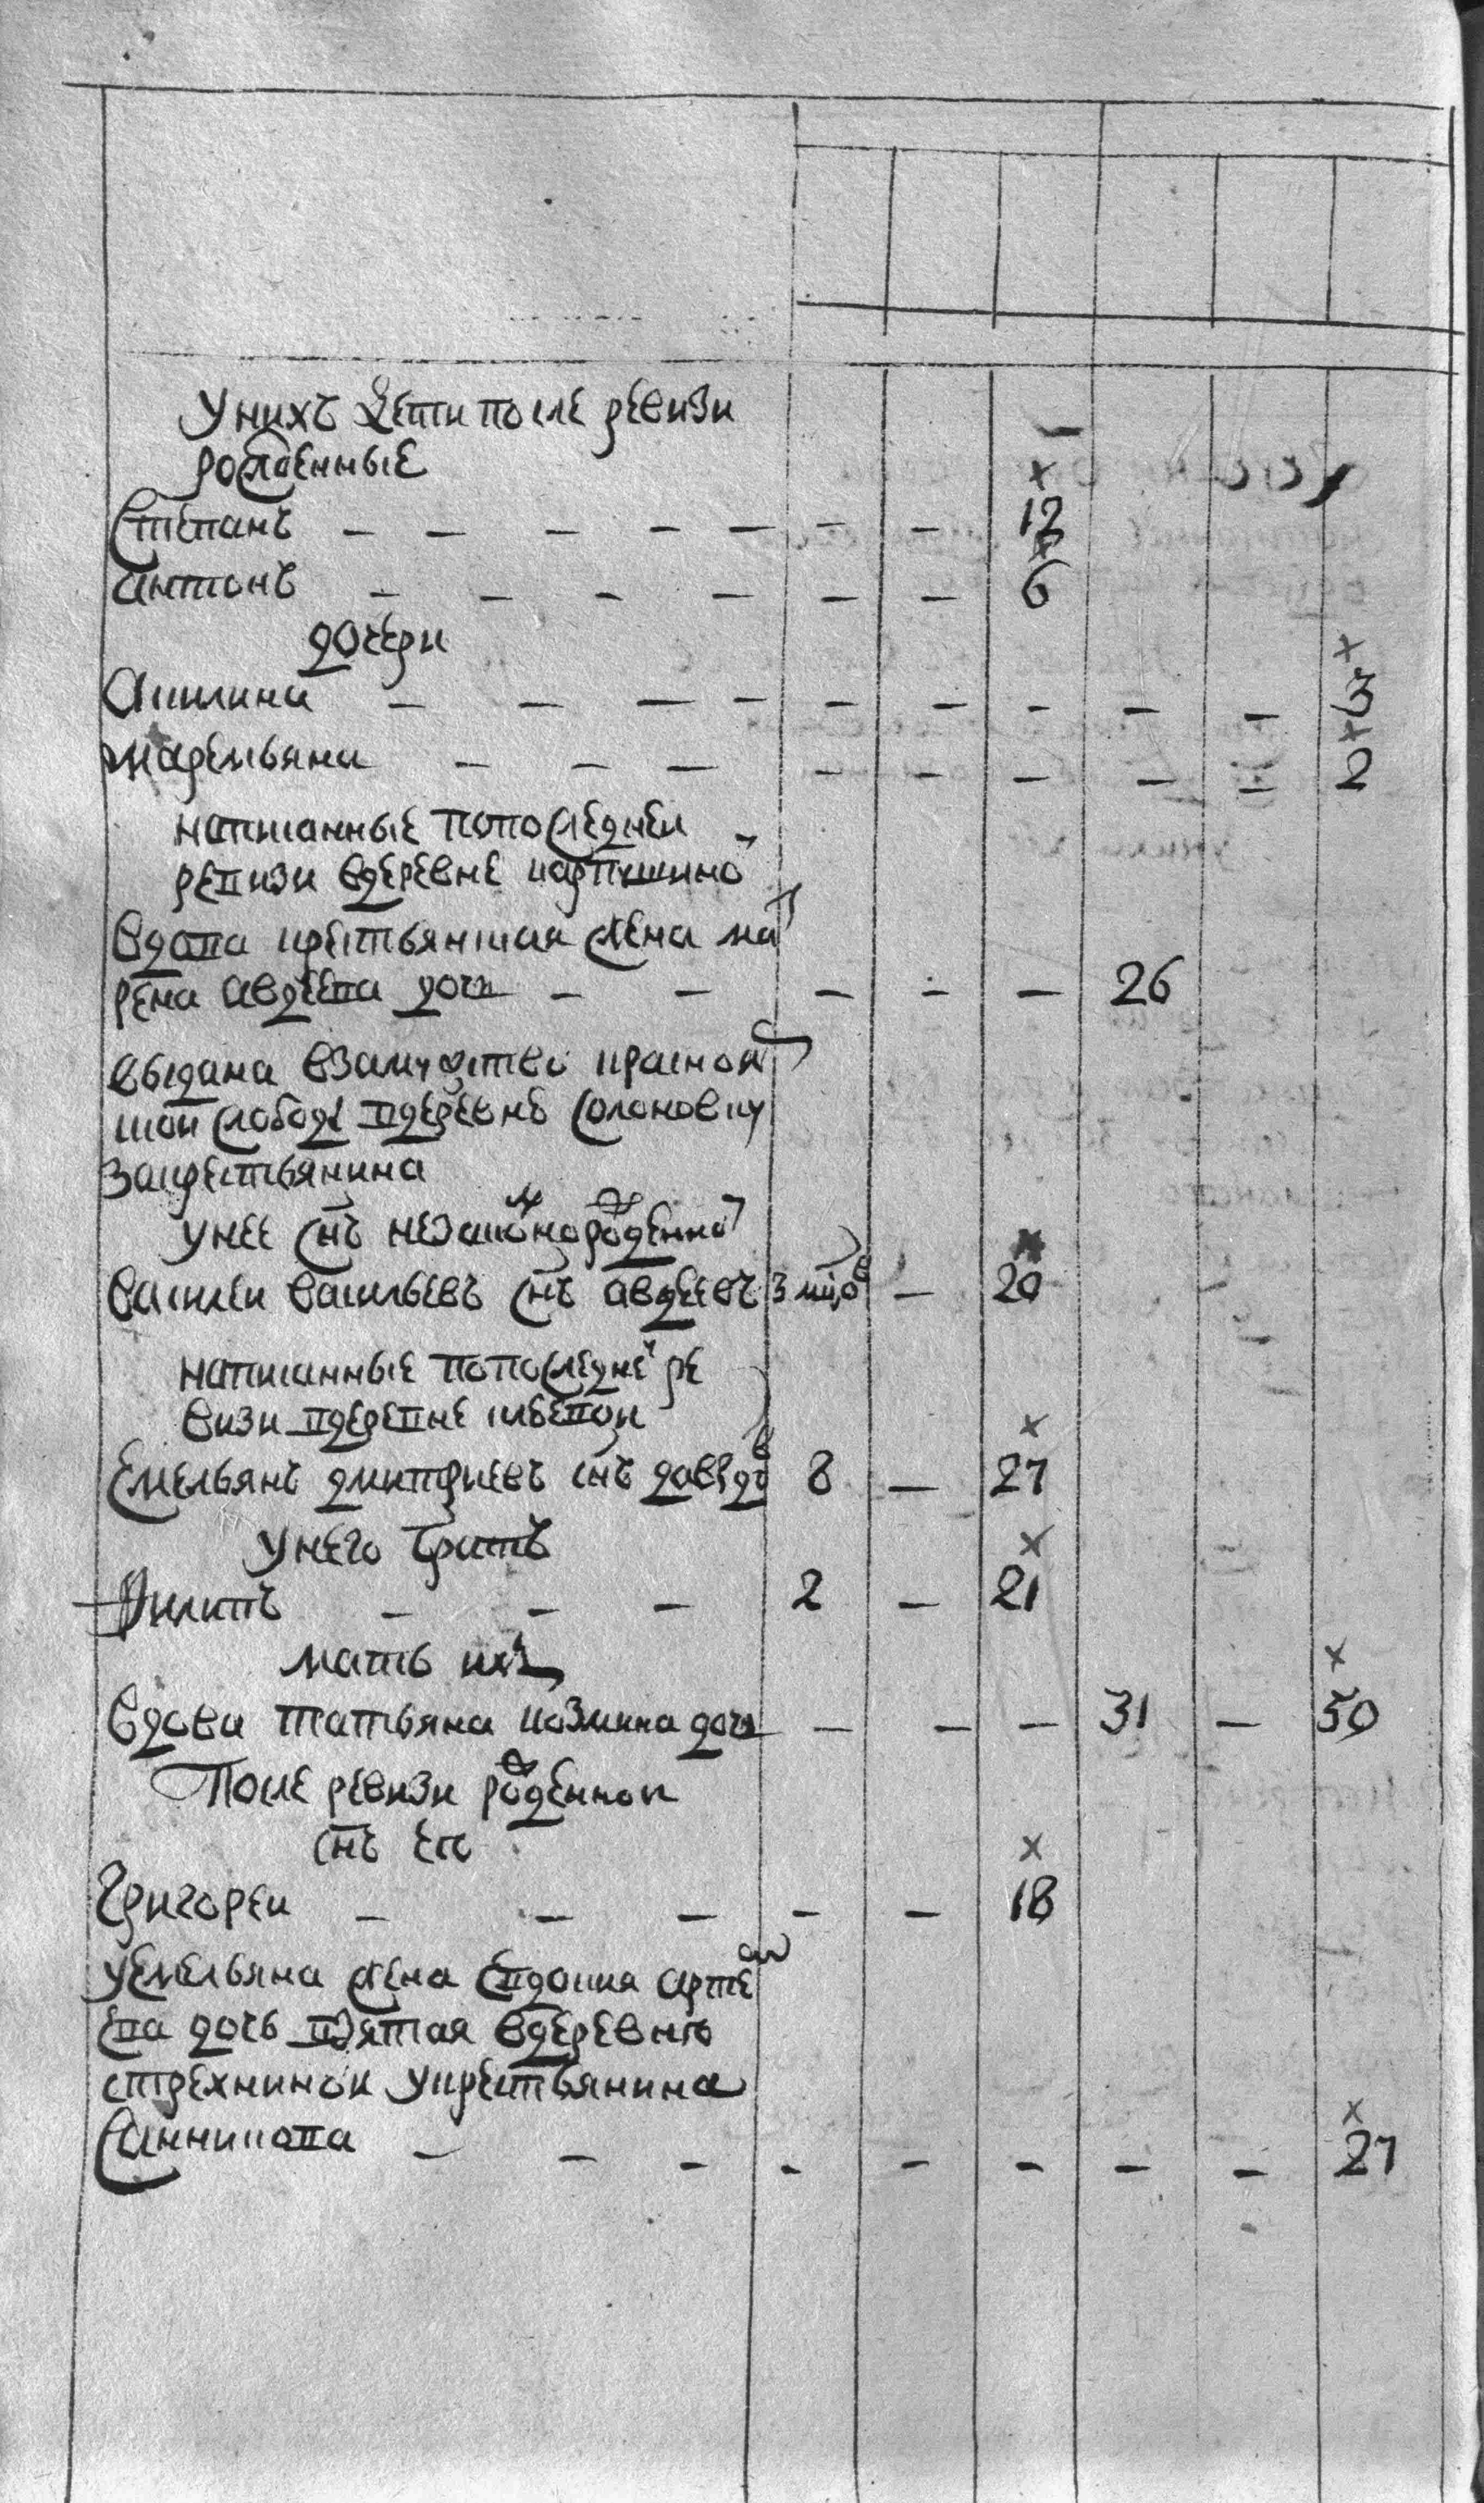 Унихъ дети после ревизи
рожденные
Степанъ — — — — — — — 12
антонъ — — — — — — 6
дочери
Акилина — — — — — — — — — 3
маремьяна — — — — — — — — 2
написанные попоследнеи
ревизи вдеревне карпушино
вдова крестьянская жена ма
рена авдеева дочь — — — — — 26
выдана взамужство красноя
ской слободе вдеревнѣ солоновку
закрестьянина
унее снъ незаконорожденной
василеи васильевъ снъ авдеевъ 3 мцов — 20
написанные попоследней ре
визи вдеревне
Емельянъ дмитриевъ снъ давыдов 8 — 27
унего братъ
Филипъ — — — 2 — 21
мать ихъ
вдова татьяна козмина дочь — — — 31 — 50
После ревизи рожденнои
снъ ев
Григореи — — — — — 18
уемельяна жена евдокия арте
ева дочь взятая вдеревню
стрехнинои укрестьянина
Санникова — — — — — — — — 27